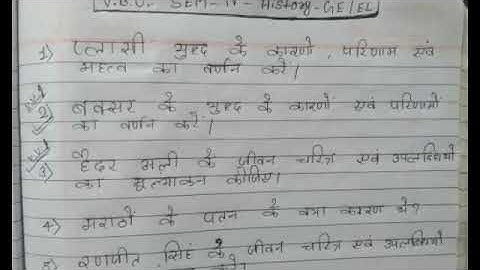 V.B.U. SEM-IV-History-GE/EL
1) प्लासी युद्ध के कारणों, परिणाम एवं
महत्व का वर्णन करें।
2) बक्सर के युद्ध के कारणों एवं परिणामों
का वर्णन करें।
3) हैदर अली के जीवन चरित्र एवं उपलब्धियों
का मूल्यांकन कीजिए।
4) मराठों के पतन के क्या कारण थे?
5) रणजीत सिंह के जीवन चरित्र एवं उपलब्धियों